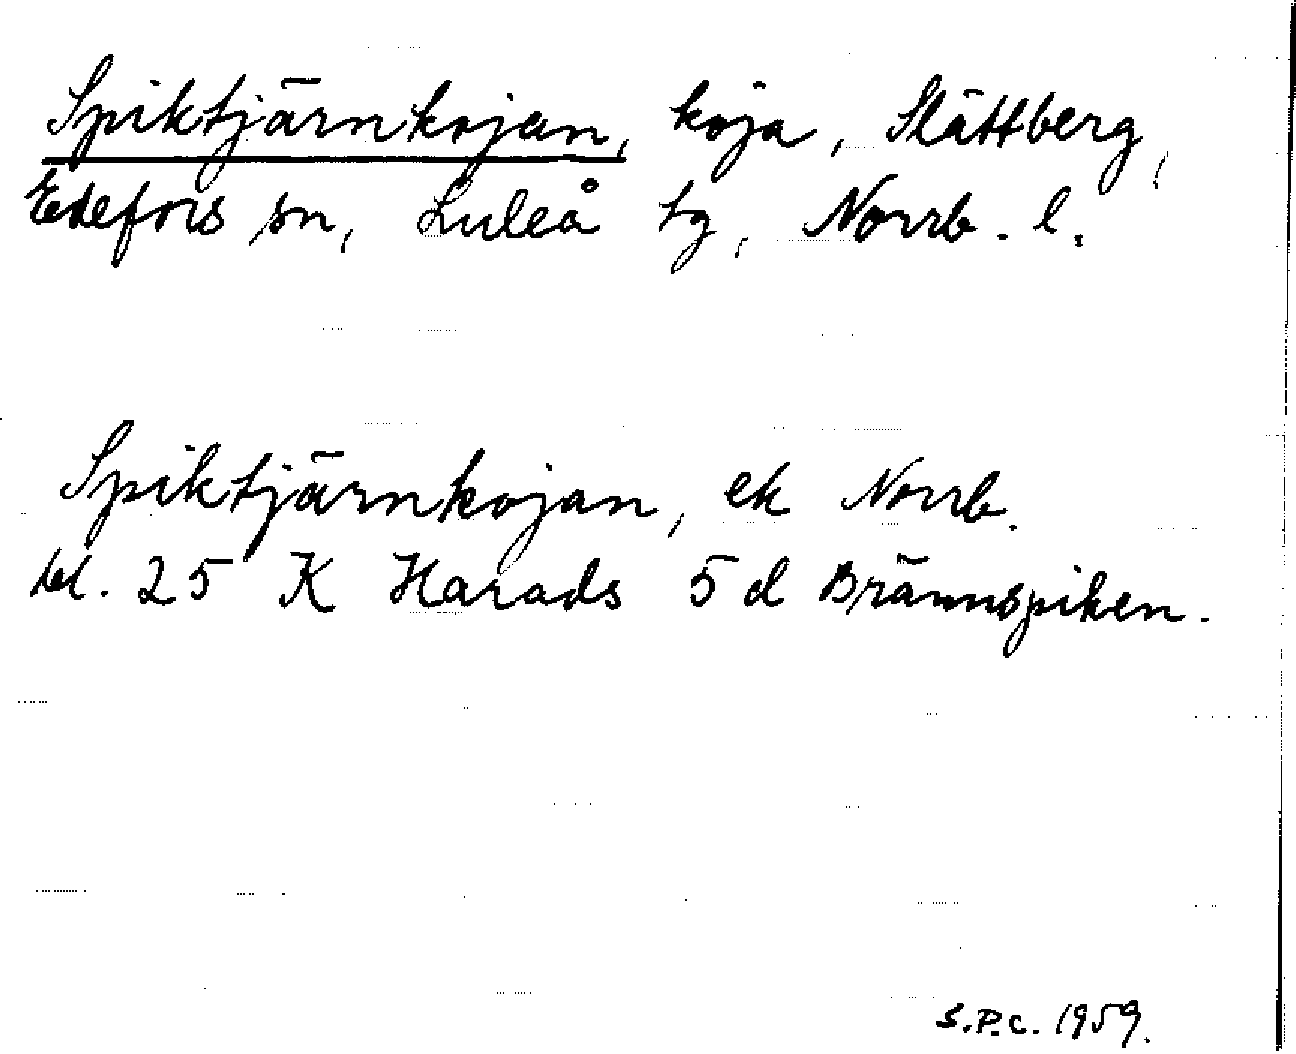 Spiktjärnkojan, koja, Slättberg,
Edefors sn, Luleå tg, Norrb. l.
Spiktjärnkojan, ek Norrb.
bl. 25 K Harads 5 d Brännspiken.
S.P.C. 1959.